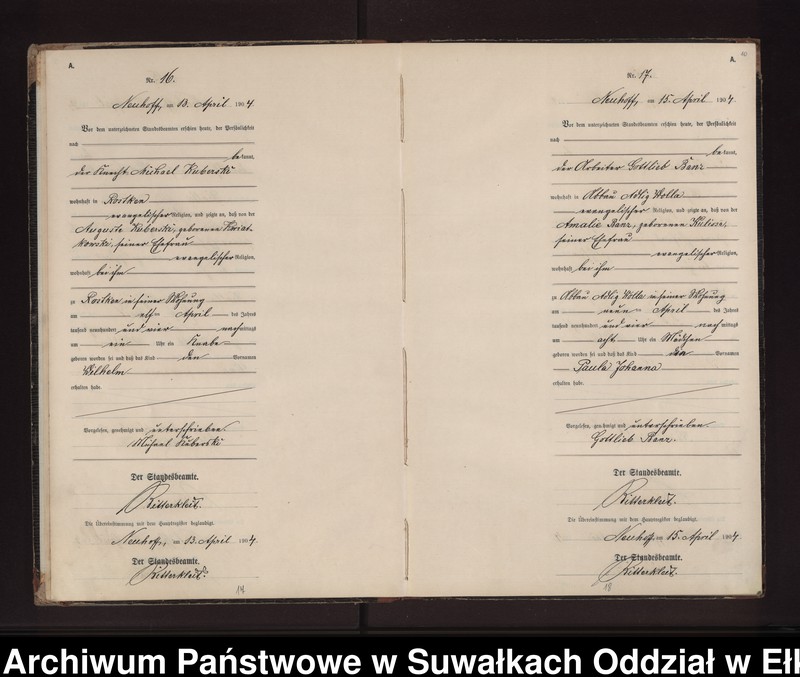 A.
Nr. 16.
Neuhoff, am 13. April 1904
Vor dem unterzeichneten Standesbeamten erschien heute, der Persönlichkeit
nach
be-kannt,
der Knecht Michael Kuberski
wohnhaft in Rostken
evangelischer Religion, und zeigte an, daß von der
Auguste Kuberski, geborenen
kowski, seiner Ehefrau
evangelischer Religion,
wohnhaft bei ihm
zu Rostken in seiner Wohnung
am elften April des Jahres
tausend neunhundert und vier nachmittags
um ein Uhr ein Knabe
geboren worden sei und daß das Kind den Vornamen
Wilhelm
erhalten habe.
Vorgelesen, genehmigt und unterschrieben.
Michael Kuberski
Der Standesbeamte.
Ritterkleit.
Die Übereinstimmung mit dem Hauptregister beglaubigt.
Neuhoff, am 13. April 1904.
Der Standesbeamte.
Ritterkleit.
A.
Nr. 17.
Neuhoff, am 15. April 1904.
Vor dem unterzeichneten Standesbeamten erschien heute, der Persönlichkeit
nach
be-kannt,
der Arbeiter Gottlieb Banz
wohnhaft in Abbau Adlig Wolla
evangelischer Religion, und zeigte an, daß von der
Amalie Banz, geborenen
seiner Ehefrau
evangelischer Religion,
wohnhaft bei ihm
zu Abbau Adlig Wolla in seiner Wohnung
am neunten April des Jahres
tausend neunhundert und vier nachmittags
um acht Uhr ein Mädchen
geboren worden sei und daß das Kind den Vornamen
Paula Johanna
erhalten habe.
Vorgelesen, genehmigt und unterschrieben.
Gottlieb Banz.
Der Standesbeamte.
Ritterkleit.
Die Übereinstimmung mit dem Hauptregister beglaubigt.
Neuhoff, am 15. April 1904.
Der Standesbeamte.
Ritterkleit.
Archiwum Państwowe w Suwałkach Oddział w Ełk